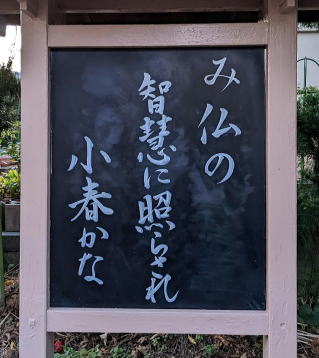 み仏の
智慧に照らされ
小春かな